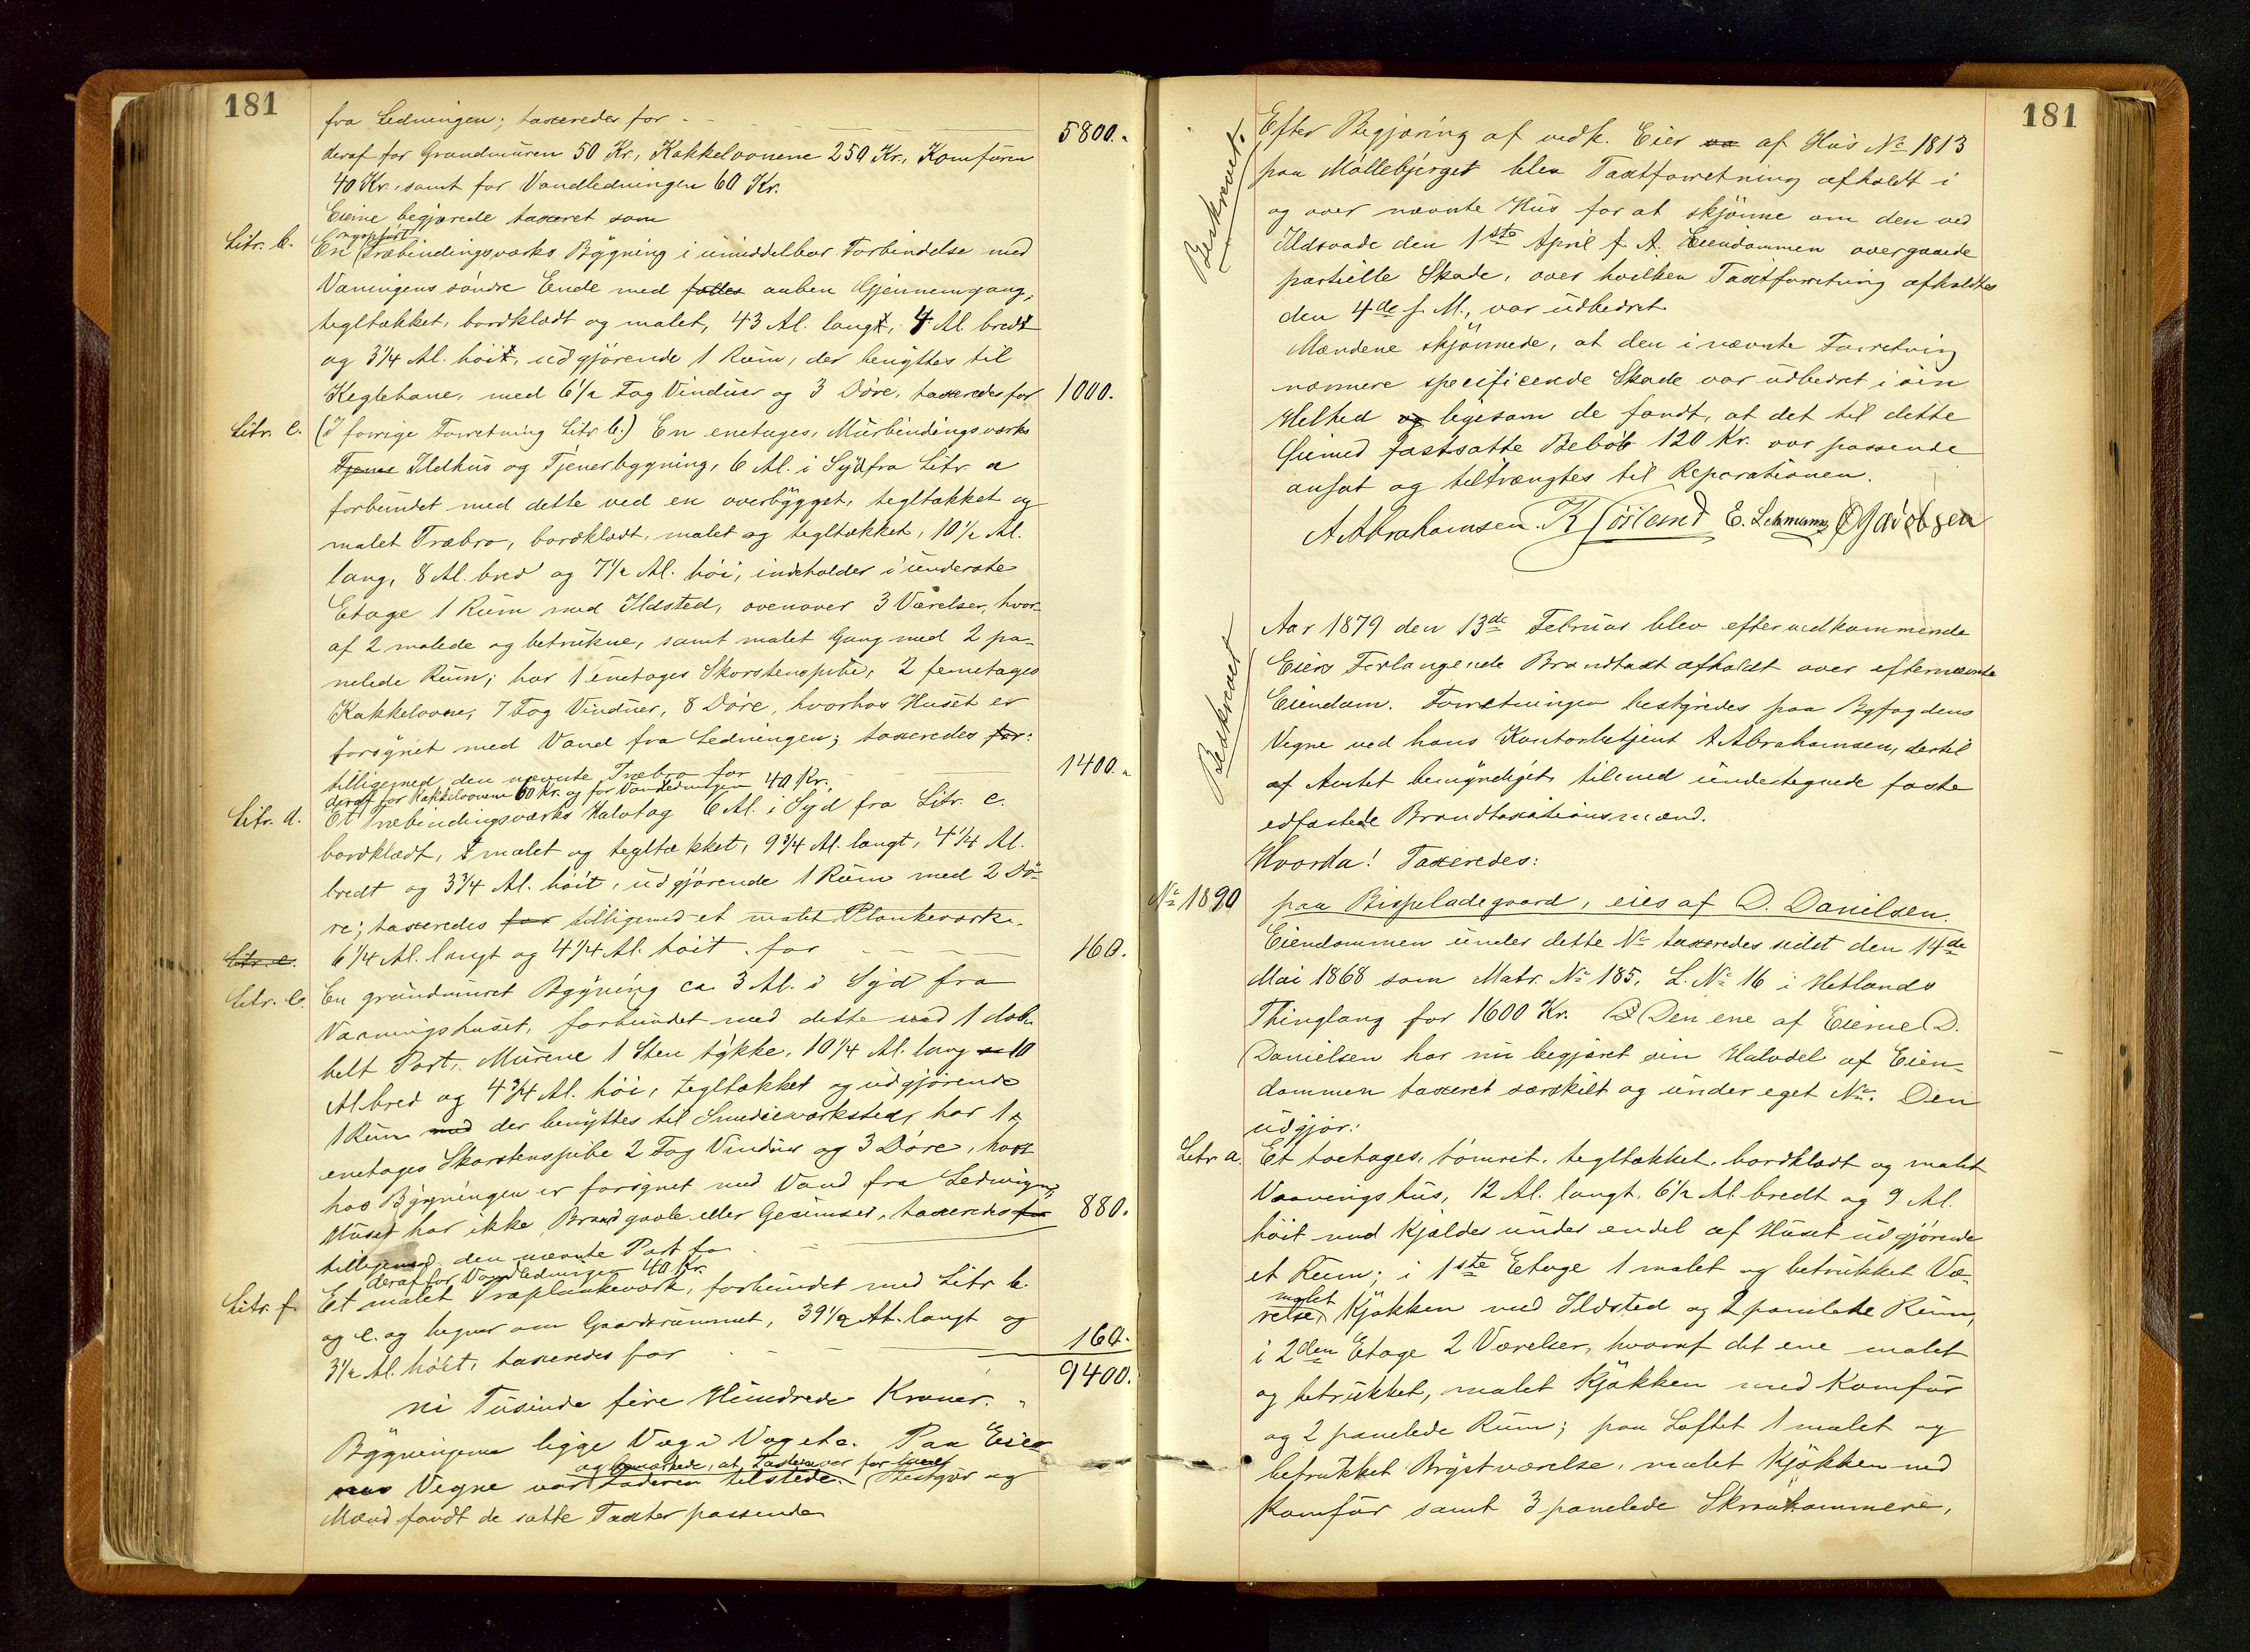 181
fra Ledningen; taxeredes for - - - - 5800.-
deraf for Grundmuren 50 Kr., Kakkelovnene 250 Kr., Komfuren
40 Kr., samt for Vandledningen 60 Kr.
Eierne begjærede taxeret som
nyopført
Litr. b. En Træbindingsværks Bygning i umiddelbar Forbindelse med
Vaningens søndre Ende med fælles aaben Gjennemgang,
tegltækket, bordklædt og malet, 43 Al. langt, 4 Al. bredt
og 3 1/4 Al. høit, udgjørende 1 Rum, der benyttes til
Keglebane, med 6 1/2 Fag Vinduer og 3 Döre, taxeredes for 1000.
Litr. c. (I forrige Forretning Litr. b.) En enetages, Murbindingsværks
Tjener Ildhus og Tjenerbygning, 6 Al. i Syd fra Litr. a
forbundet med dette ved en overbygget, tegltækket og
malet Træbro, bordklædt, malet og tegltækket, 10 1/2 Al.
lang, 8 Al. bred og 7 1/2 Al. høi, indeholder i underste
Etage 1 Rum med Ildsted, ovenover 3 Værelser, hvor-
af 2 malede og betrukne, samt malet Gang med 2 pa-
nelede Rum; har 1 enetages Skorstenspibe, 2 femetages
Kakkelovne, 7 Fag Vinduer, 8 Döre, hvorhos Huset er
forsynet med Vand fra Ledningen; taxeredes for:
tilligemed den nævnte Træbro for - 1400.-
deraf for Kakkelovnene 60 Kr. og for Vandledningen 40 Kr.
Litr. d. Et Træbindingsværks Halvtag 6 Al. i Syd fra Litr. c.
bordklædt, malet og tegltækket, 9 3/4 Al. langt, 4 1/4 Al.
bredt og 3 3/4 Al. høit, udgjørende 1 Rum med 2 Dö-
re; taxeredes for tilligemed et malet Plankeværk.
Litr. e. 6 1/4 Al. langt og 4 1/4 Al. høit. for - - - 160.
Litr. e. En grundmuret Bygning ca 3 Al. i Syd fra
Vaaningshuset, forbundet med dette ved 1 dob-
belt Port. Murene 1 Sten tykke, 10 1/4 Al. lang 10
Al bred og 4 3/4 Al. høi, tegltækket og udgjørende
1 Rum med der benyttes til Smedieværksted, har 1
enetages Skorstenspibe 2 Fag Vinduer og 3 Döre, hvor
hos Bygningen er forsynet med Vand fra Ledningen,
Huset har ikke Brandgavle eller Gesimser, taxeredes for 880.
tilligemed den nævnte Port for
deraf for Vandledningen 40 Kr.
Litr. f. Et malet Træplankeværk, forbundet med Litr b.
og e. og hegner om Gaardsrummet, 39 1/2 Al. langt og
3 1/2 Al. høit, taxeredes for - - - 160.
9400.
ni Tusinde fire Hundrede Kroner.
Bygningerne ligge Vaga Vagete. Paa Eier
og bemærkede, at Taxten var for lavt
nes Vegne var tilstede. Bestyr og
Mænd fandt de satte Taxter passende

181
Beskrevet.
Efter Begjæring af vedk. Eier va af Hus No 1813
paa Møllebjerget blev Taxtforretning afholdt i
og over nævnte Hus for at skjönne om den ved
Ildsvaade den 1ste April f. A. Eiendommen overgaaede
partielle Skade, over hvilken Taxtforretning afholdtes
den 4de s. M., var udbedret.
Mændene skjønnede, at den i nævnte Forretning
nærmere specificerede Skade var udbedret i sin
Helhed og ligesom de fandt, at det til dette
Øiemed fastsatte Beløb 120 Kr. var passende
ansat og tiltrængtes til Reparationen.
A Abrahamsen. E. Lehmann O Jacobsen
Beskrevet
Aar 1879 den 13de Februar blev efter vedkommende
Eiers Forlangende Brandtaxt afholdt over efternævnte
Eiendom. Forretningen bestyredes paa Byfogdens
Vegne ved hans Kontorbetjent A Abrahamsen, dertil
af Amtet bemyndiget, tilmed undertegnede faste
edfæstede Brandtaxationsmænd.
Hvorda! Taxeredes:
No 1890 paa Bispeladegaard, eies af D. Danielsen.
Eiendommen under dette No taxeredes sidst den 14de
Mai 1868 som Matr. No 185, L. No 16 i Hetlands
Thinglag for 1600 Kr. Den ene af Eierne D.
Danielsen har nu begjæret sin Halvdel af Eien-
dommen taxeret særskilt og under eget No. Den
udgjør:
Litr a. Et toetages, tömret, tegltækket, bordklædt og malet
Vaaningshus, 12 Al. langt, 6 1/2 Al. bredt og 9 Al.
høit med Kjælder under endel af Huset udgjørende
et Rum; i 1ste Etage 1 malet og betrukket Væ-
malet
relse, Kjøkken med Ildsted og 2 panelede Rum,
i 2den Etage 2 Værelser, hvoraf det ene malet
og betrukket, malet Kjøkken med Komfur
og 2 panelede Rum; paa Loftet 1 malet og
betrukket Brystværelse, malet Kjøkken med
Komfur samt 3 panelede Skraakammere,